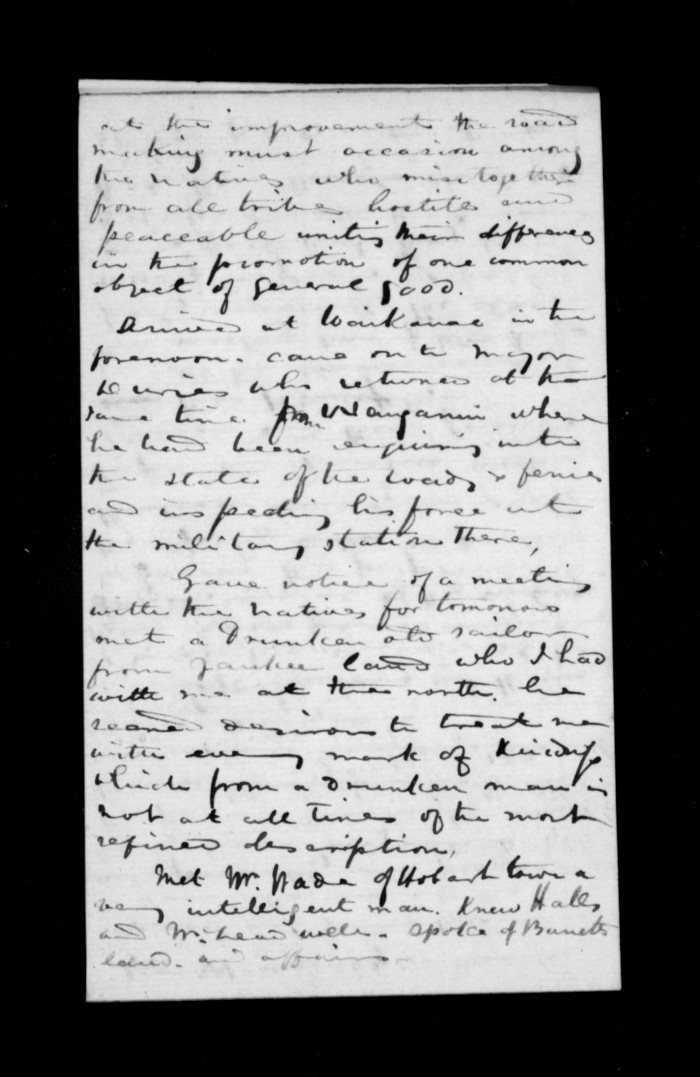 at the improvement the road
making must occasion among
the natives who mix together
from all tribes hostile and
peaceable uniting their differences
in the promotion of one common
object of general good.
Arrived at Waikanae in the
forenoon. came on to Major
Duries who returned at the
same time from Wanganui where
he had been enquiring into
the state of the roads & ferries
and inspecting his force at
the military station there,
Gave notice of a meeting
with the natives for tomorrow
met a Drunken old sailor
from Yankee land who I had
with me at the north. he
seemed desirous to treat me
with every mark of kindness
which from a drunken man is
not at all times of the most
refined description,
Met Mr. Wade of Hobart town a
very intelligent man. Knew Halls
and well. spoke of Barretts
land. and affairs.